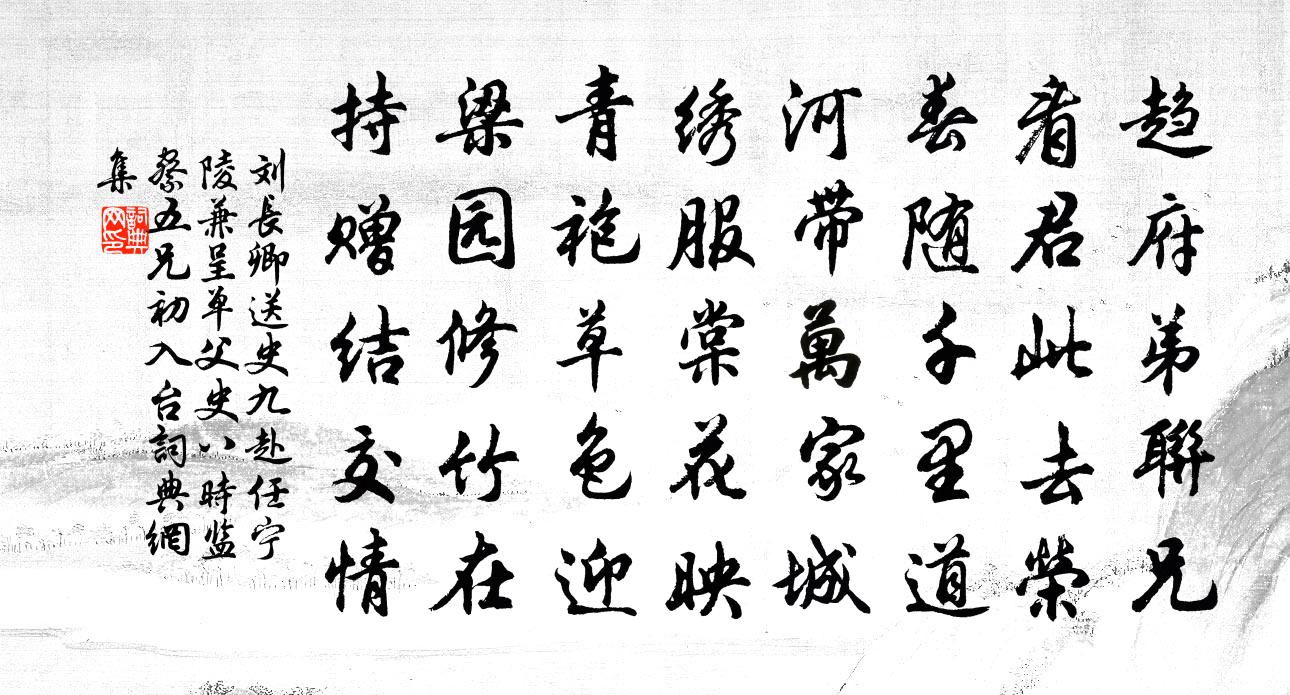 趋府弟聯兄
看君此去榮
春随千里道
河带萬家城
绣服棠花映
青袍草色迎
梁园修竹在
持赠结交情
刘長卿送史九赴任宁
陵兼呈单父史八時监
察五兄初入台詞典網
集
詞典
网印